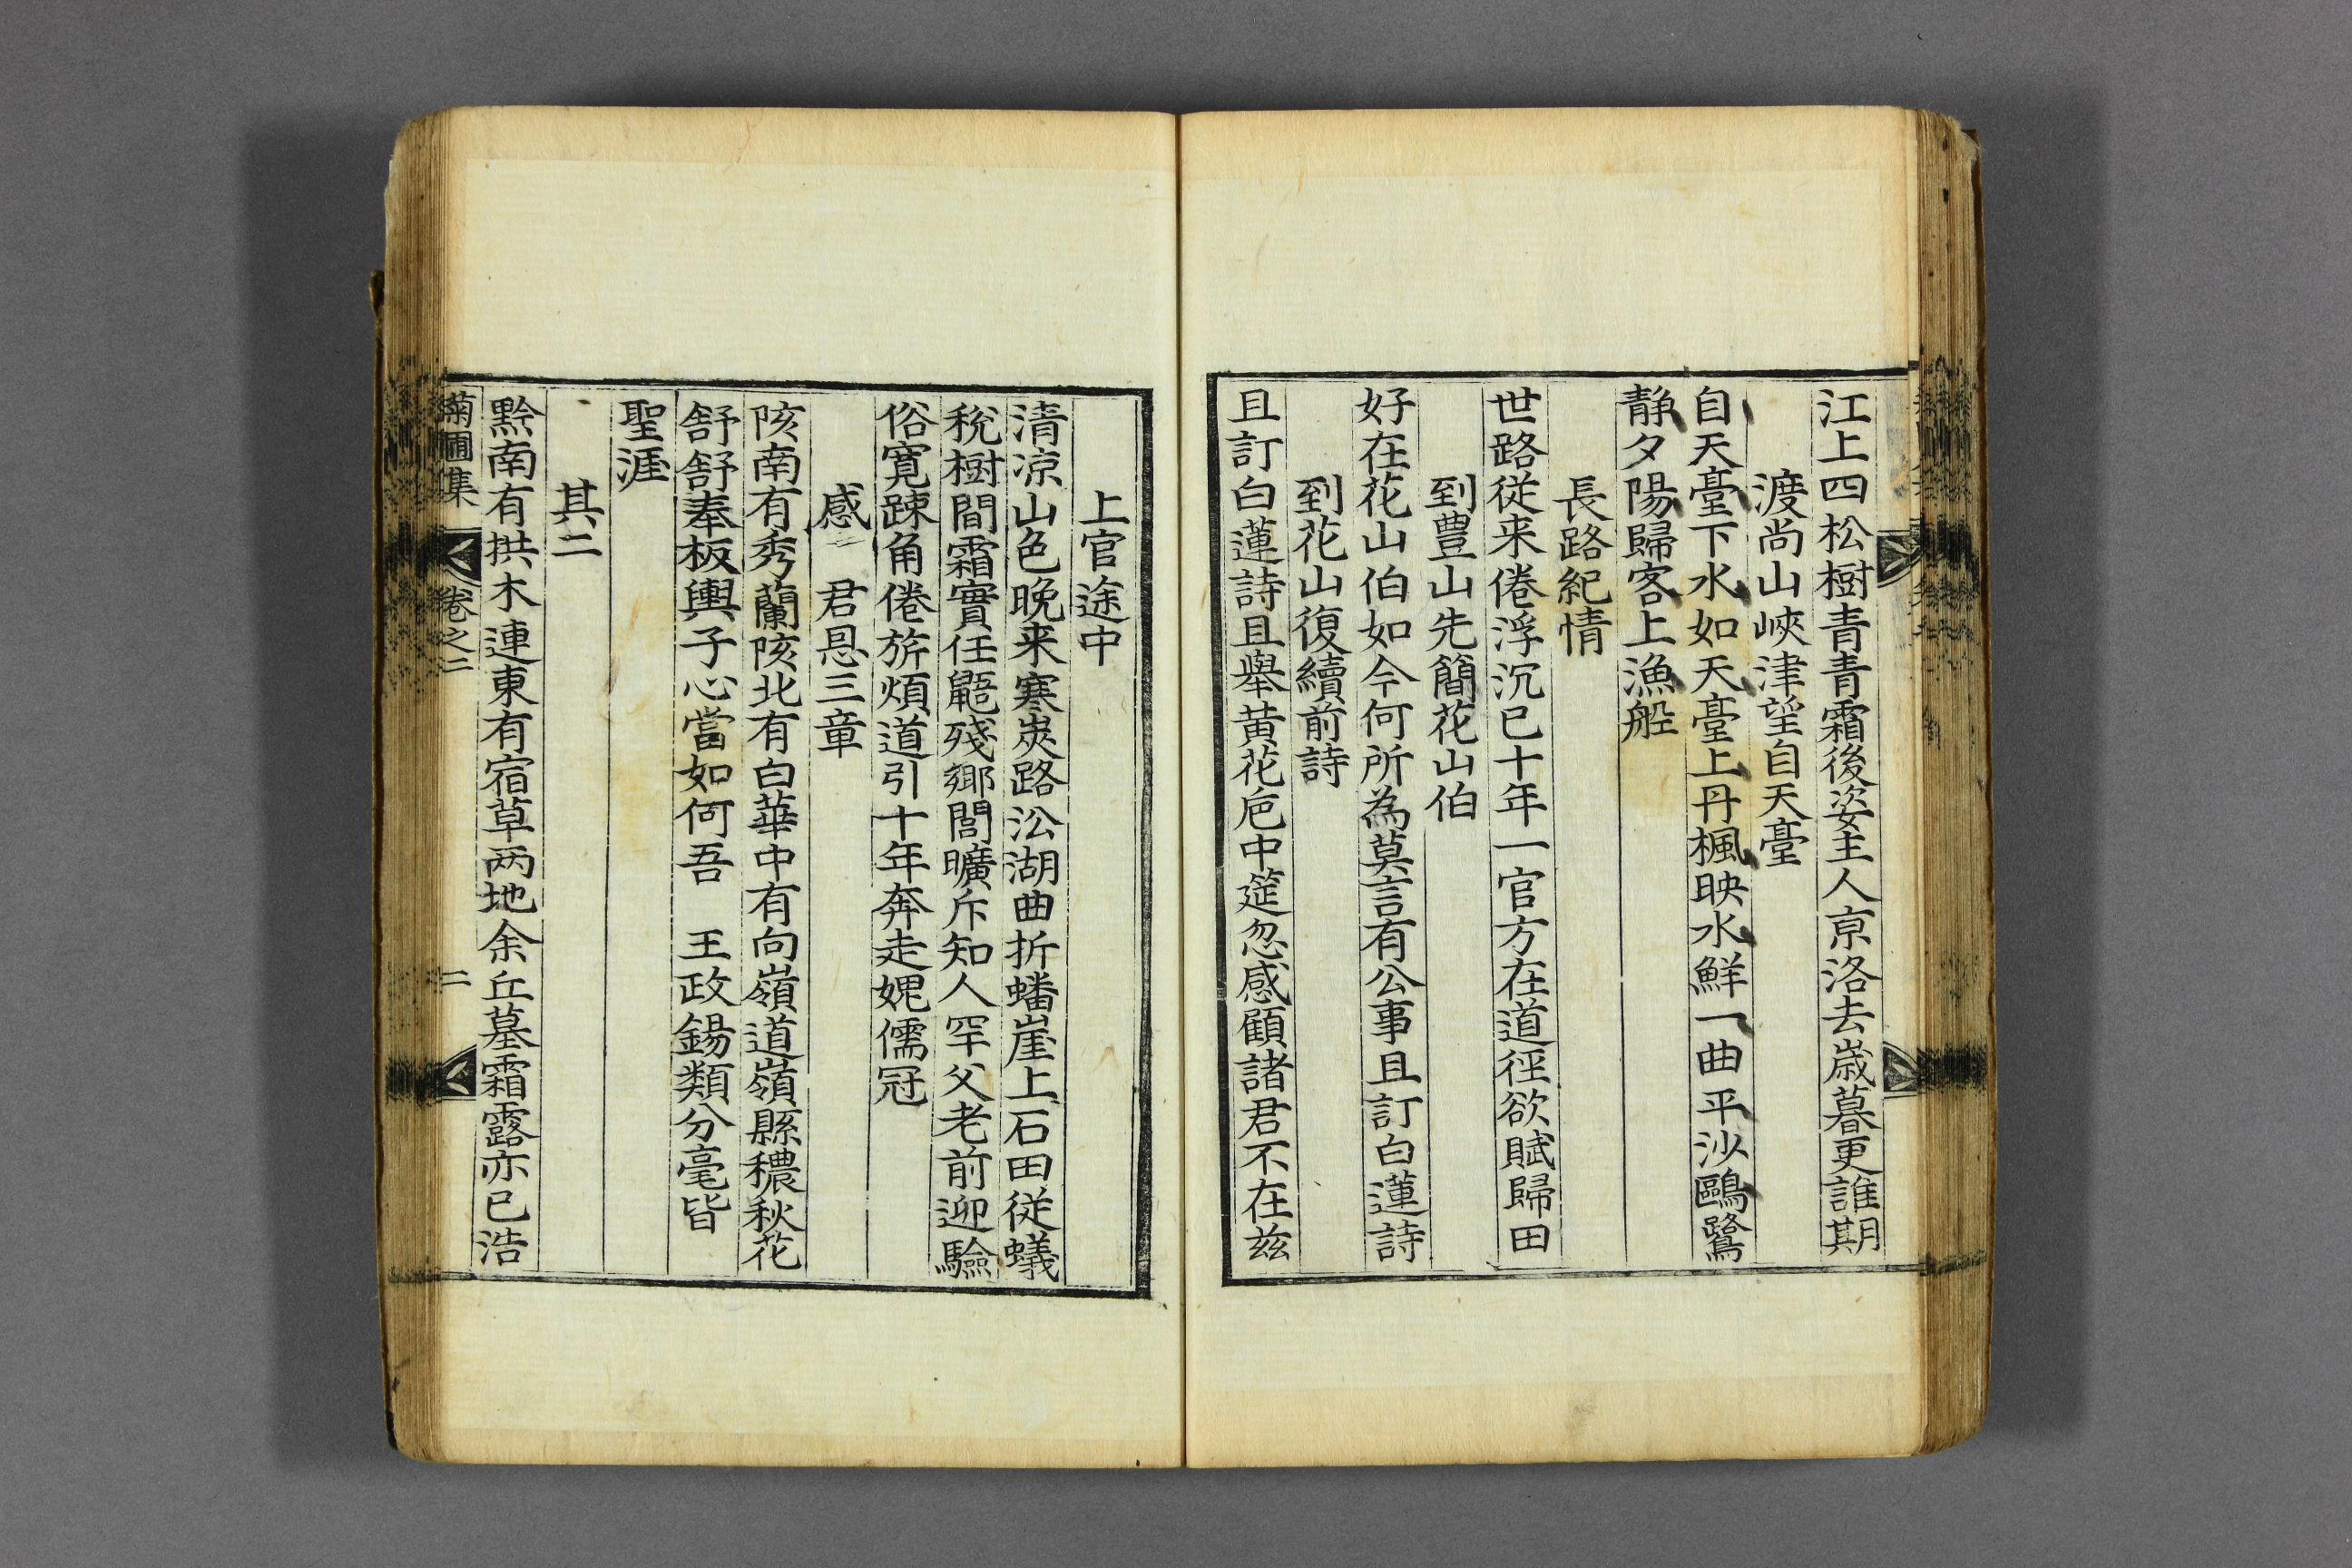 江上四松樹青青霜後姿主人京洛去嵗暮更誰期
渡尚山峽津望自天臺
自天臺下水如天臺上丹楓映水鮮一曲平沙鷗鷺
静夕陽歸客上漁船
長路紀情
世路從来倦浮沉已十年一官方在道徑欲賦歸田
到豊山先簡花山伯
好在花山伯如今何所為莫言有公事且訂白蓮詩
到花山復續前詩
且訂白蓮詩且舉黃花巵中筵忽感顧諸君不在兹
上官途中
清凉山色晚来寒炭路㳂湖曲折蟠崖上石田従蟻
稅樹間霜實任鼯殘鄉閭曠斥知人罕父老前迎驗
俗寛踈角倦旂煩道引十年奔走媿儒冠
感 君恩三章
陔南有秀蘭陔北有白華中有向嶺道嶺縣穠秋花
舒舒奉板輿子心當如何吾 王政錫類分毫皆
聖涯
其二
黔南有拱木連東有宿草两地余丘墓霜露亦已浩
菊圃集 卷之二 二